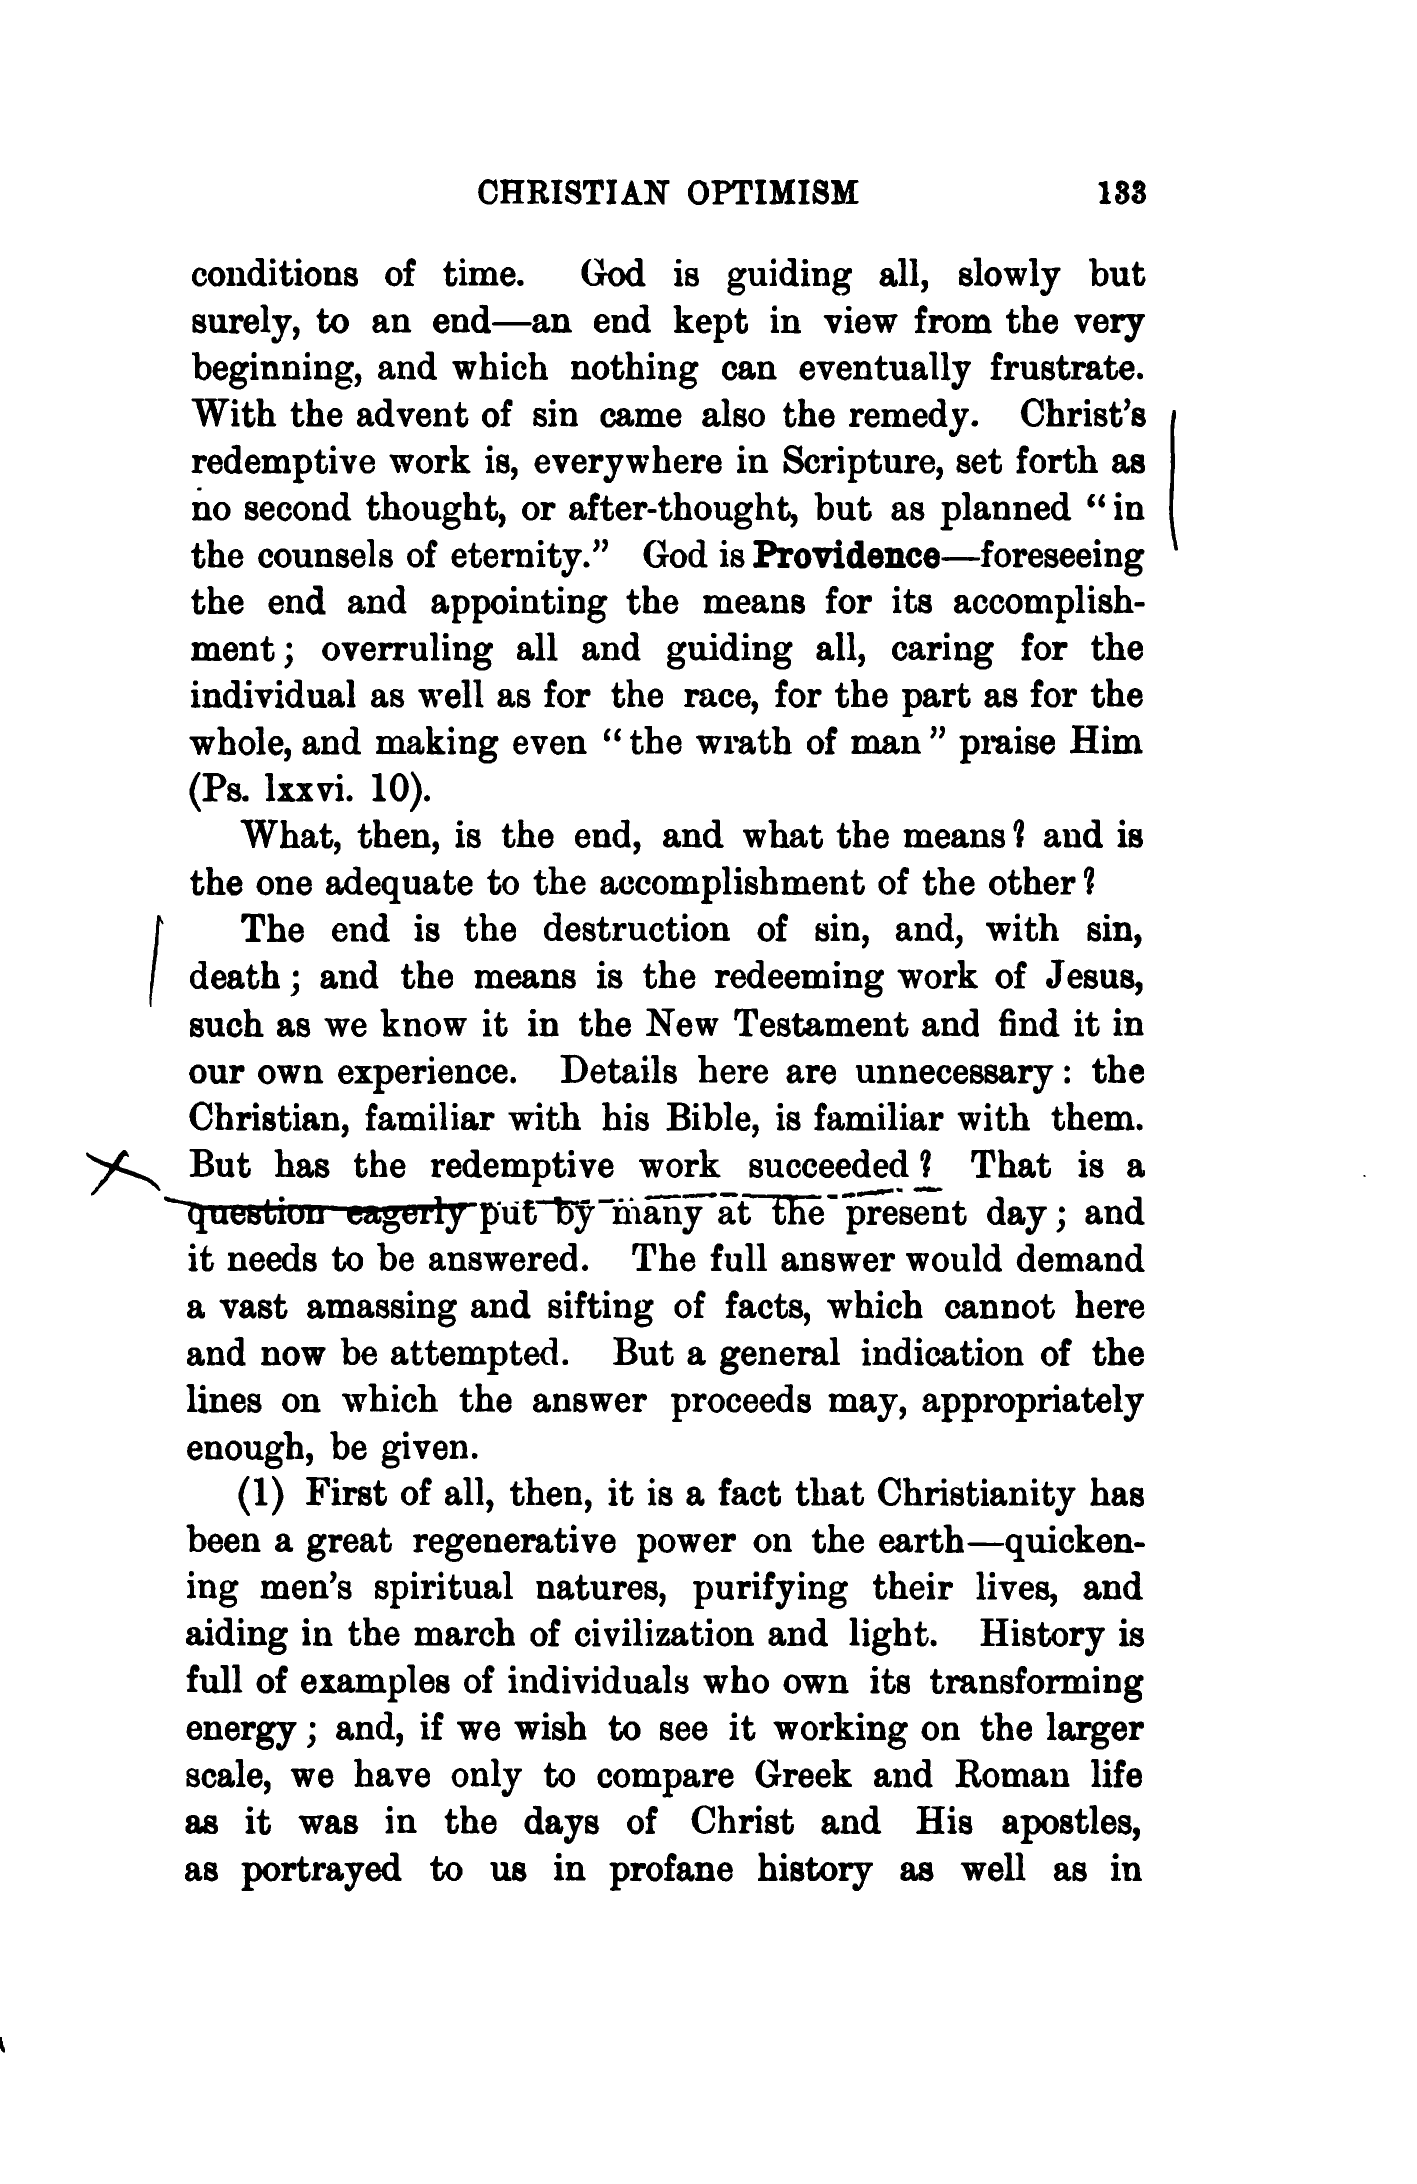 CHRISTIAN OPTIMISM 133
conditions of time. God is guiding all, slowly but
surely, to an end—an end kept in view from the very
beginning, and which nothing can eventually frustrate.
With the advent of sin came also the remedy. Christ's
redemptive work is, everywhere in Scripture, set forth as
no second thought, or after-thought, but as planned "in
the counsels of eternity." God is Providence—foreseeing
the end and appointing the means for its accomplish-
ment; overruling all and guiding all, caring for the
individual as well as for the race, for the part as for the
whole, and making even "the wrath of man" praise Him
(Ps. lxxvi. 10).
What, then, is the end, and what the means? and is
the one adequate to the accomplishment of the other?
The end is the destruction of sin, and, with sin,
death; and the means is the redeeming work of Jesus,
such as we know it in the New Testament and find it in
our own experience. Details here are unnecessary: the
Christian, familiar with his Bible, is familiar with them.
But has the redemptive work succeeded? That is a
question eagerly put by many at the present day; and
it needs to be answered. The full answer would demand
a vast amassing and sifting of facts, which cannot here
and now be attempted. But a general indication of the
lines on which the answer proceeds may, appropriately
enough, be given.
(1) First of all, then, it is a fact that Christianity has
been a great regenerative power on the earth—quicken-
ing men's spiritual natures, purifying their lives, and
aiding in the march of civilization and light. History is
full of examples of individuals who own its transforming
energy; and, if we wish to see it working on the larger
scale, we have only to compare Greek and Roman life
as it was in the days of Christ and His apostles,
as portrayed to us in profane history as well as in